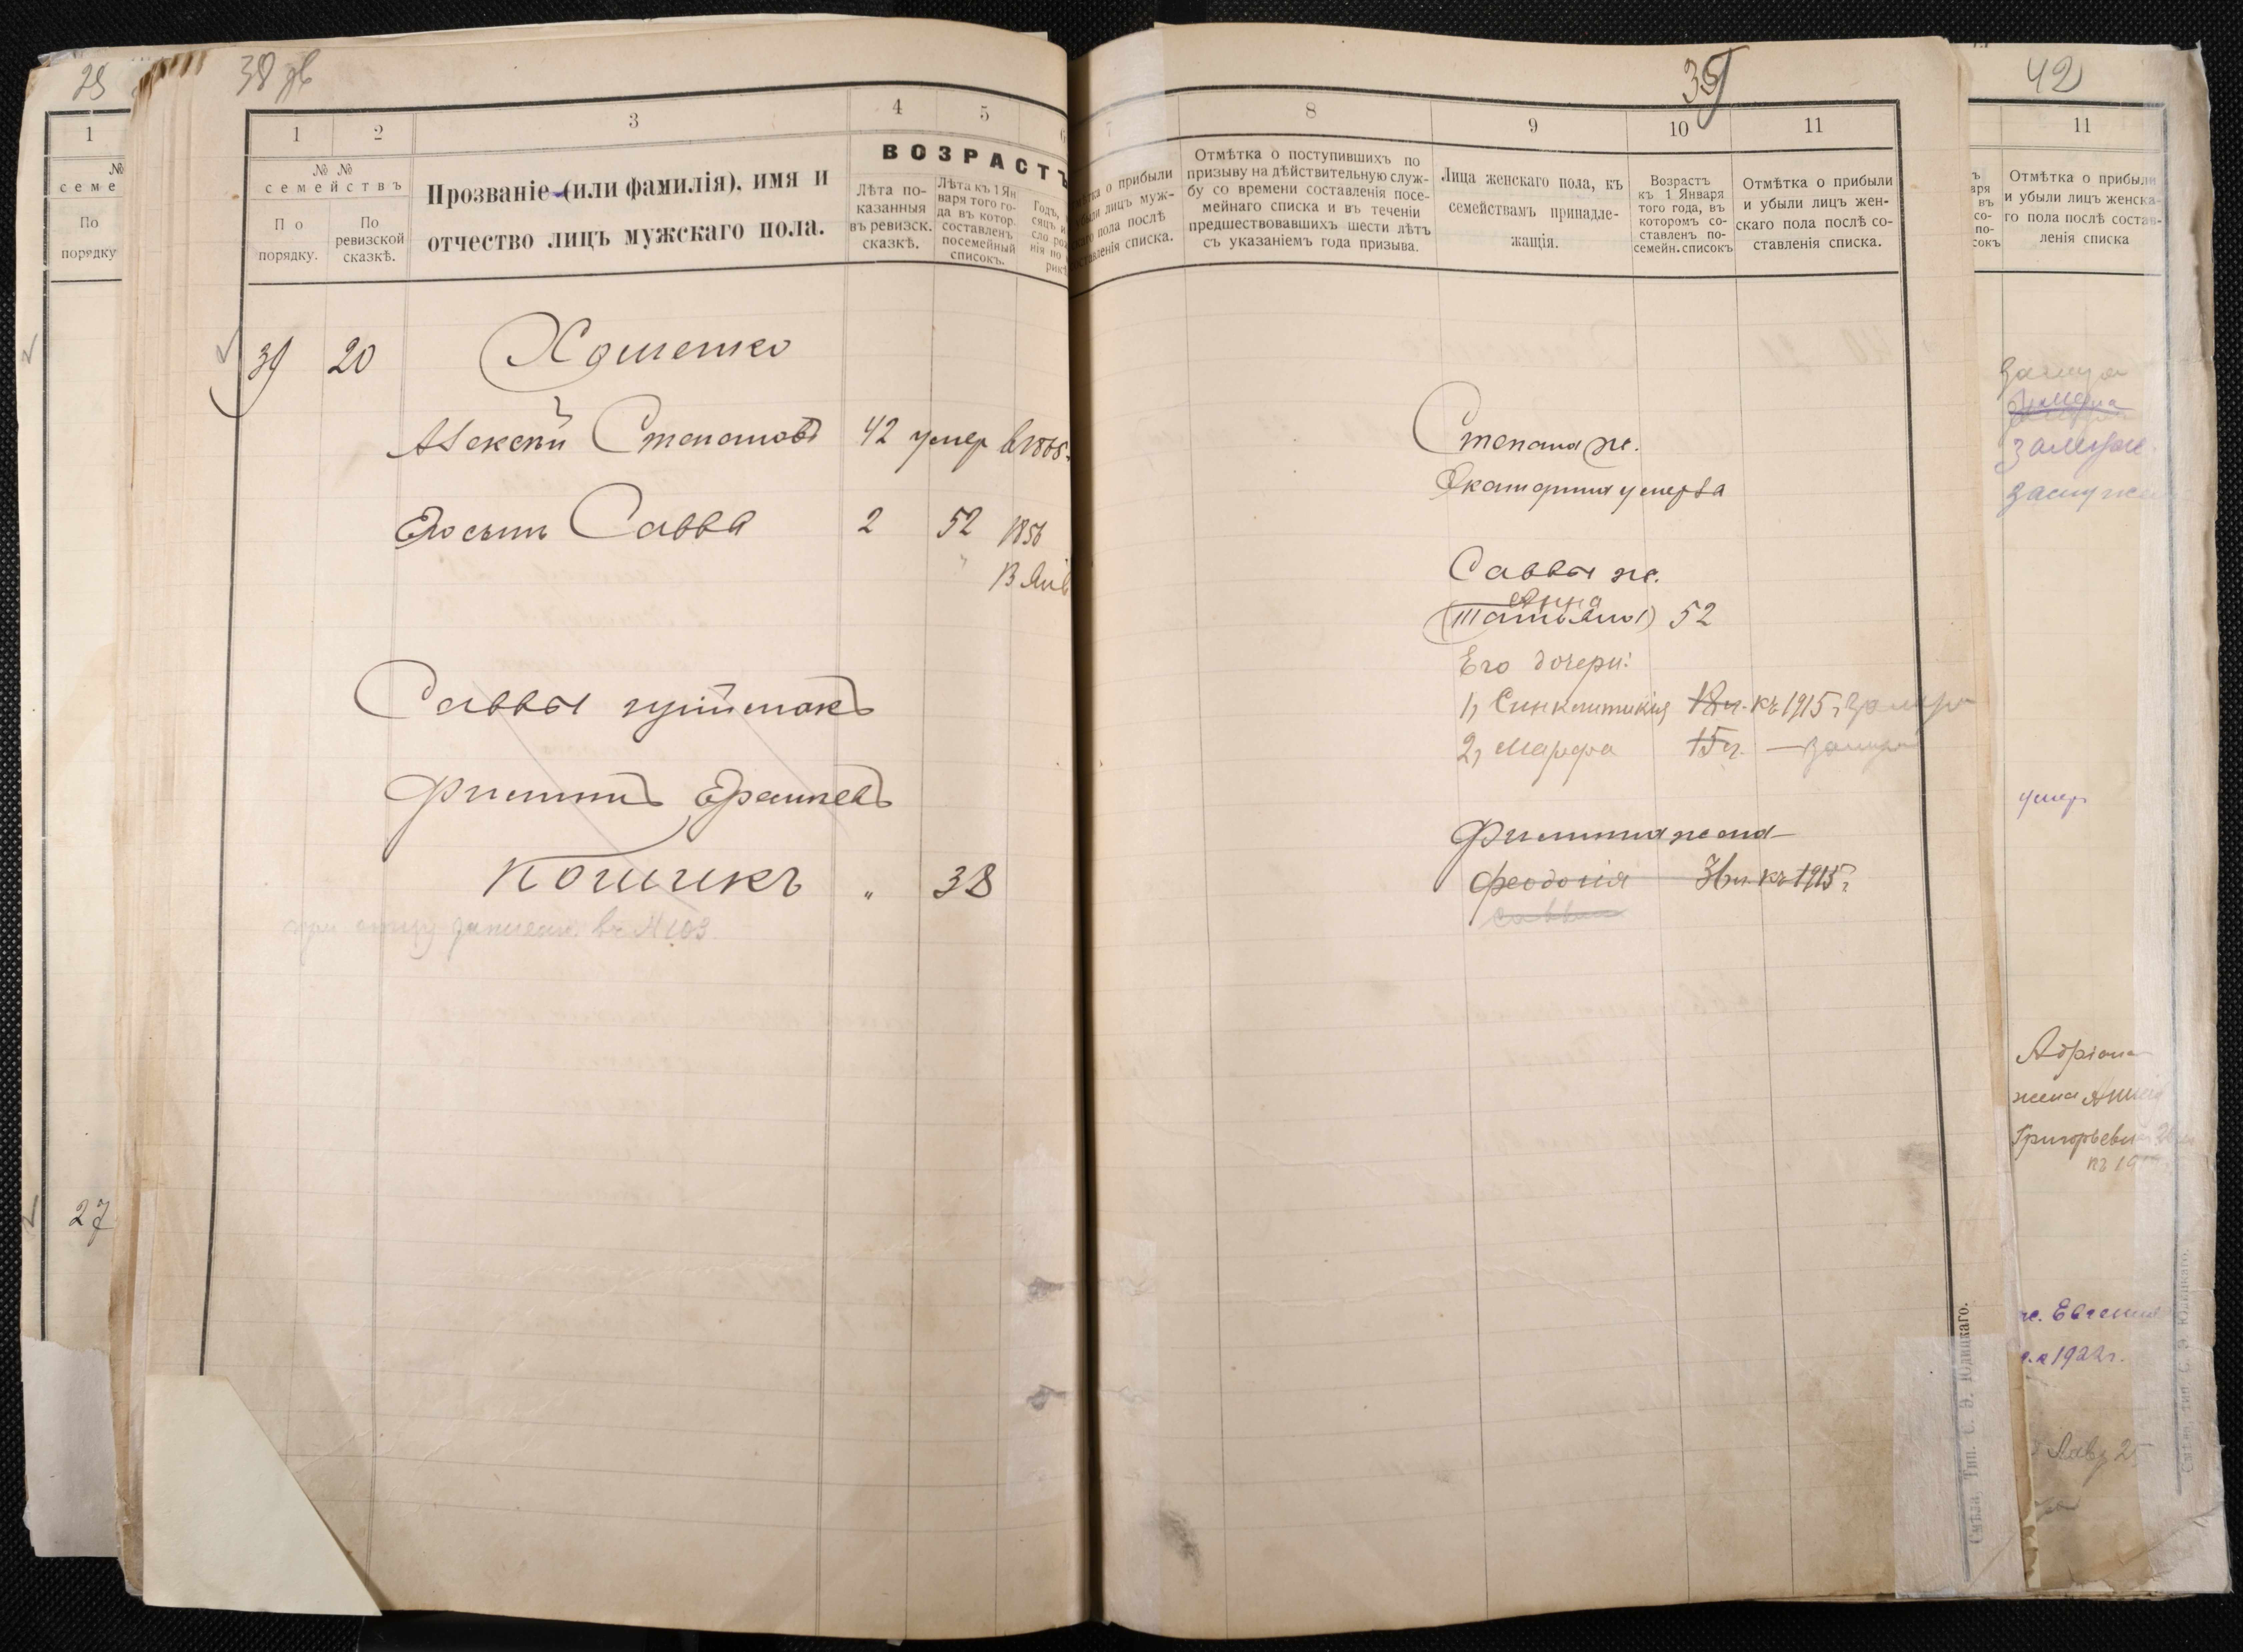 38 зв
1
2
3
4
5
ВОЗРАСТЪ
№ №
семействъ
По
порядку.
По
ревизской
сказкѣ.
Прозваніе (или фамилія), имя и
отчество лицъ мужскаго пола.
Лѣта по-
казанныя
въ ревизск.
сказкѣ.
Лѣта къ 1 Ян
варя того го-
да въ котор.
составленъ
посемейный
списокъ.
39 20
Хоменко
Алексѣй Степановъ 42 умер в 1868
Его сынъ Савва 2 52 1856
13 Янв
Саввы пріймакъ
Филиппъ
Кошикъ " 38
при отцу записан. въ № 103.
39
7
8
9
10
11
Отмѣтка о прибыли
и убыли лицъ муж-
скаго пола послѣ
составленія списка.
Отмѣтка о поступившихъ по
призыву на дѣйствительную служ-
бу со времени составленія посе-
мейнаго списка и въ теченіи
предшествовавшихъ шести лѣтъ
съ указаніемъ года призыва.
Лица женскаго пола, къ
семействамъ принадле-
жащія.
Возрастъ
къ 1 Января
того года, въ
которомъ со-
ставленъ по-
семейн. списокъ
Отмѣтка о прибыли
и убыли лицъ жен-
скаго пола послѣ со-
ставленія списка.
Степана ж.
Екатерина умерла
Саввы ж.
Анна
(Татьяна) 52
Его дочери:
1, Синклитикія 18 л. къ 1915 г. замуж
2, Марфа 15 л. — замуж
Филиппа жена
Феодосія 36 л. къ 1915 г.
Смѣла, Тип. С. Э. Юдицкаго.
29
1
№
семе
По
порядку
27
42
11
Отмѣтка о прибыли
и убыли лицъ женска-
го пола послѣ состав-
ленія списка
замуж
замуж.
замуже
умер
Адріана
жена
Григорьевна
ж. Евгения
1922 г.